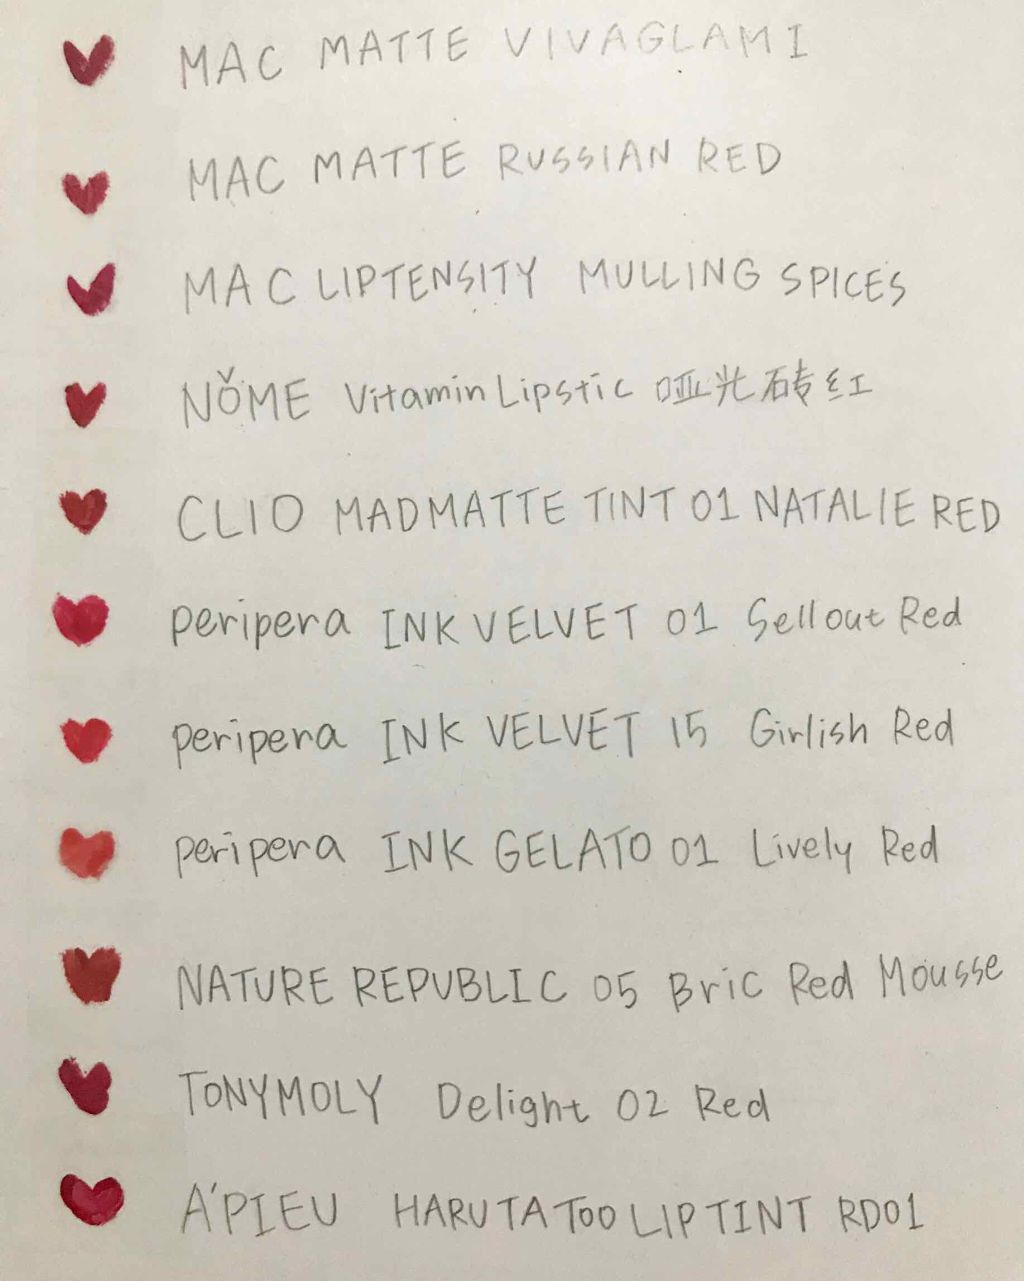 MAC MATTE VIVAGLAM I
MAC MATTE RUSSIAN RED
MAC LIPTENSITY MULLING SPICES
NǑME Vitamin Lipstic 哑光砖红
CLIO MADMATTE TINT 01 NATALIE RED
peripera INK VELVET 01 Sellout Red
peripera INK VELVET 15 Girlish Red
peripera INK GELATO 01 Lively Red
NATURE REPUBLIC 05 Bric Red Mousse
TONYMOLY Delight 02 Red
A'PIEU HARU TATOO LIP TINT RD01